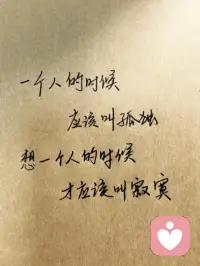 一个人的时候
应该叫孤独
想一个人的时候
才应该叫寂寞